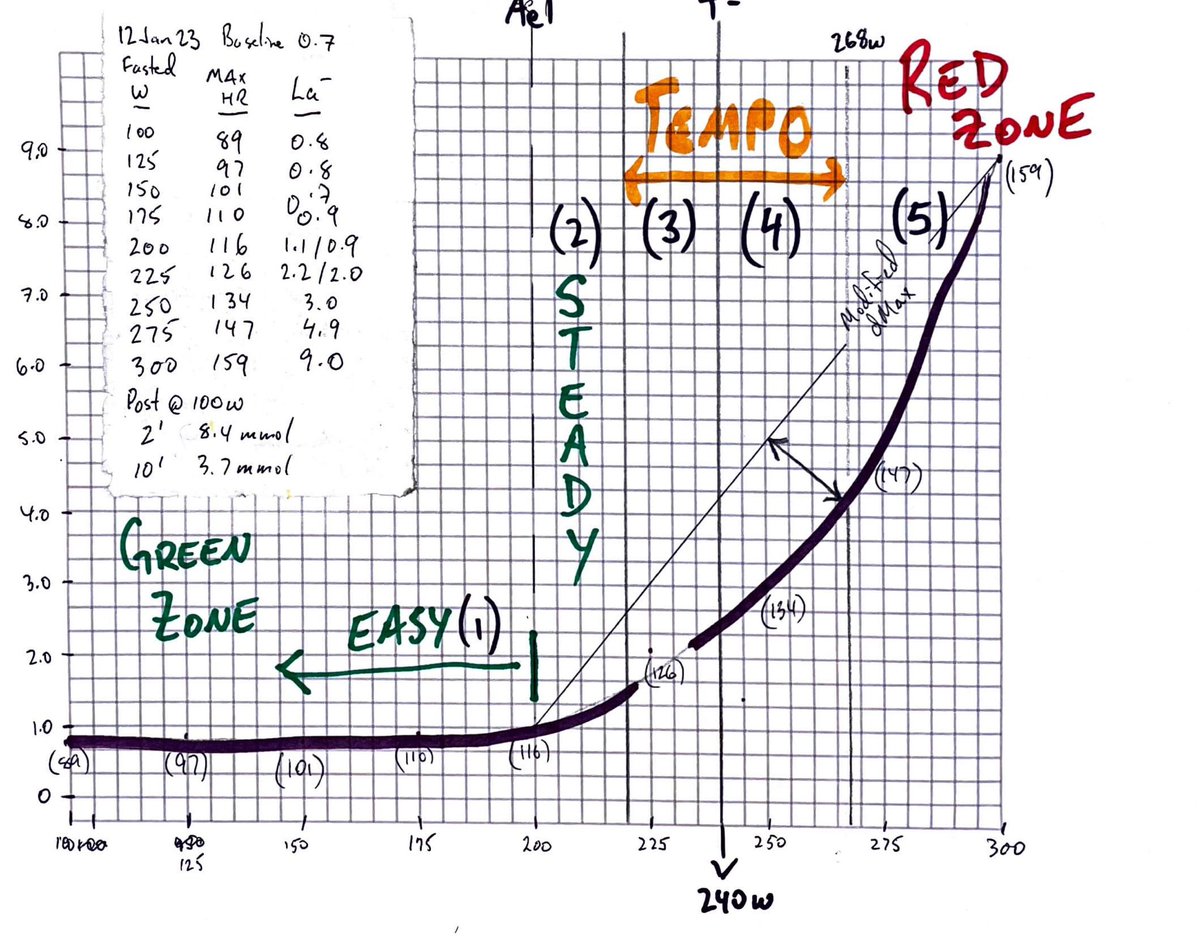 12 Jan 23 Baseline 0.7
Fasted
W MAX HR La⁻
100 89 0.8
125 97 0.8
150 101 0.7
175 110 0.9
200 116 1.1/0.9
225 126 2.2/2.0
250 134 3.0
275 147 4.9
300 159 9.0
Post @ 100w
2' 8.4 mmol
10' 3.7 mmol
AeT
268w
RED
ZONE
TEMPO
(2) (3) (4) (5)
STEADY
Modified
dMax
GREEN
ZONE
EASY (1)
9.0
8.0
7.0
6.0
5.0
4.0
3.0
2.0
1.0
0
(89) (97) (101) (110) (116) (126) (134) (147) (159)
100 125 150 175 200 225 250 275 300
240w